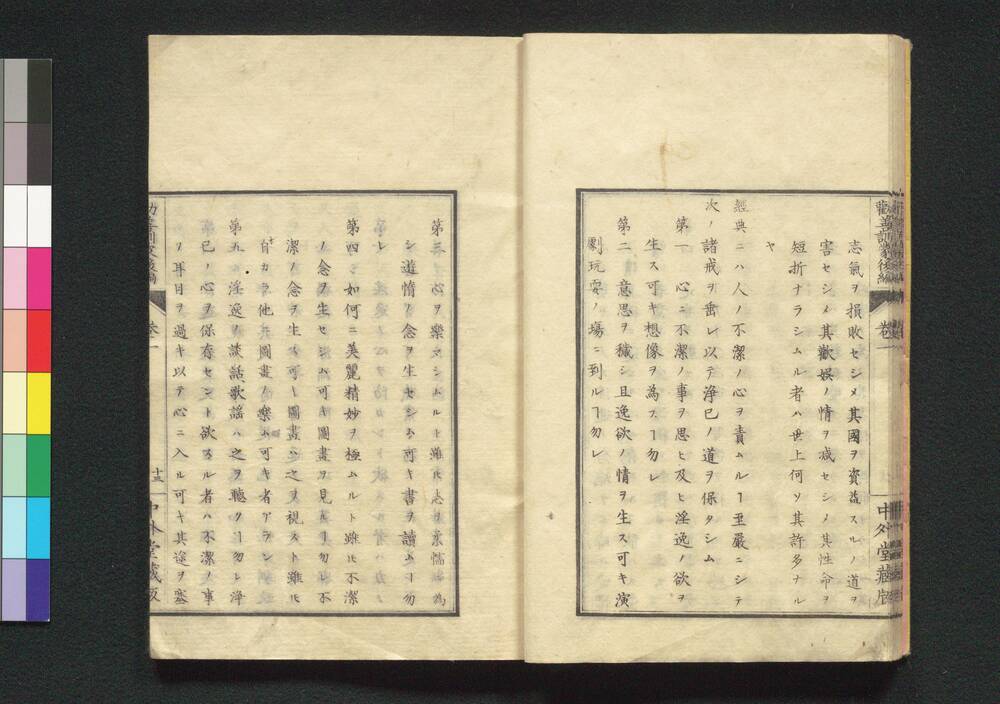 勸善訓蒙後編
卷一
中外堂藏版
志氣ヲ損敗セシメ其國ヲ資益スルノ道ヲ
害セシメ其歡娯ノ情ヲ減セシメ其性命ヲ
短折ナラシムル者ハ世上何ソ其許多ナル
ヤ
經典ニハ人ノ不潔ノ心ヲ責ムルヿ至嚴ニシテ
次ノ諸戒ヲ垂レ以テ淨已ノ道ヲ保タシム
第一 心ニ不潔ノ事ヲ思ヒ及ヒ淫逸ノ欲ヲ
生ス可キ想像ヲ為スヿ勿レ
第二 意思ヲ穢シ且逸欲ノ情ヲ生ス可キ演
劇玩耍ノ塲ニ到ルヿ勿レ
第三 心ヲ樂マシムルト雖𪜈志
為
シ遊惰ノ念ヲ生セシム可キ書ヲ讀ムヿ勿
レ
第四 如何ニ美麗精妙ヲ極ムルト雖𪜈不潔
ノ念ヲ生セシム可キ圖畫ヲ見ルヿ勿レ不
潔ノ念ヲ生ス可キ圖畫ハ之ヲ視スト雖𪜈
自カラ他ニ圖畫ノ樂ム可キ者アラン
第五 淫逸ノ談話歌謡ハ之ヲ聽クヿ勿レ淨
已ノ心ヲ保存セント欲スル者ハ不潔ノ事
ノ耳目ヲ過キ以テ心ニ入ル可キ其途ヲ塞
勸善訓蒙後編
卷一
十五
中外堂藏版